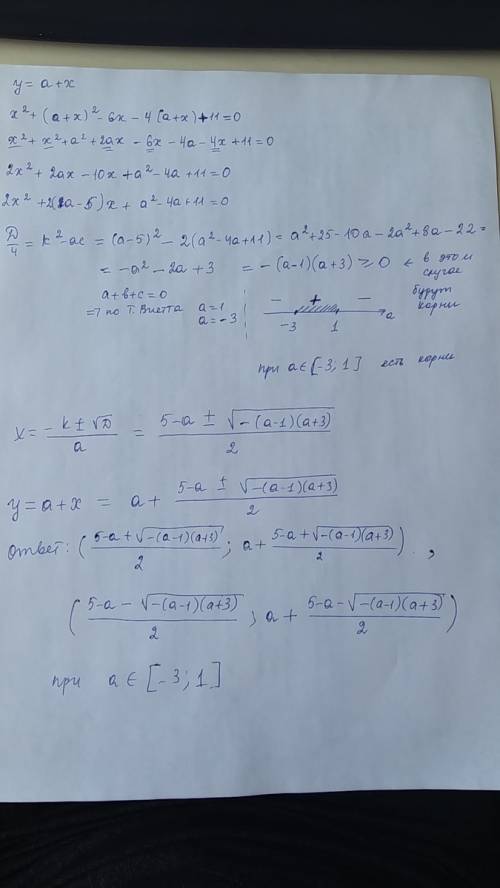 y = a+x
x² + (a+x)² - 6x - 4(a+x) + 11 = 0
x² + x² + a² + 2ax - 6x - 4a - 4x + 11 = 0
2x² + 2ax - 10x + a² - 4a + 11 = 0
2x² + 2(a-5)x + a² - 4a + 11 = 0
D/4 = k² - ac = (a-5)² - 2(a² - 4a + 11) = a² + 25 - 10a - 2a² + 8a - 22 =
= -a² - 2a + 3 = -(a-1)(a+3) ⩾ 0 ← в этом случае будут корни
a+b+c=0
=> по т. Виетта a=1 a=-3
- + -
-3 1 a
при a ∈ [-3; 1] есть корни
x = (-k ± √D)/a = (5-a ± √(-(a-1)(a+3)))/2
y = a+x = a + (5-a ± √(-(a-1)(a+3)))/2
Ответ: ((5-a + √(-(a-1)(a+3)))/2 ; a + (5-a + √(-(a-1)(a+3)))/2) ,
((5-a - √(-(a-1)(a+3)))/2 ; a + (5-a - √(-(a-1)(a+3)))/2)
при a ∈ [-3; 1]